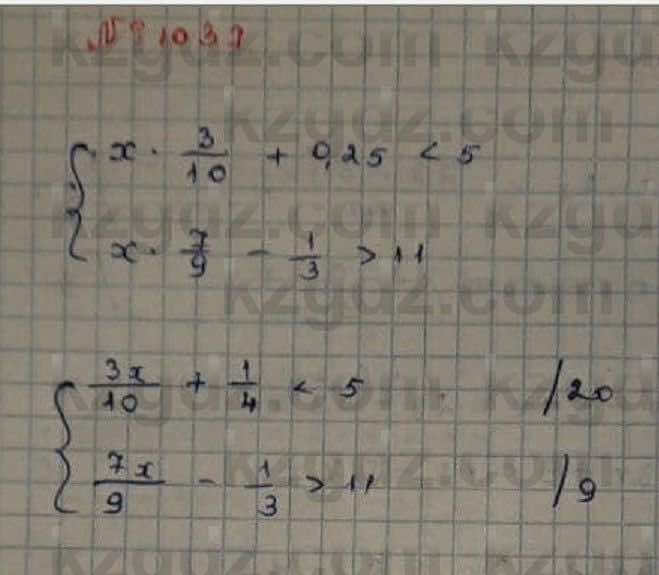 № 1039
x · 3/10 + 0,25 < 5
x · 7/9 - 1/3 > 11
3x/10 + 1/4 < 5 /20
7x/9 - 1/3 > 11 /9
kzgdz.com